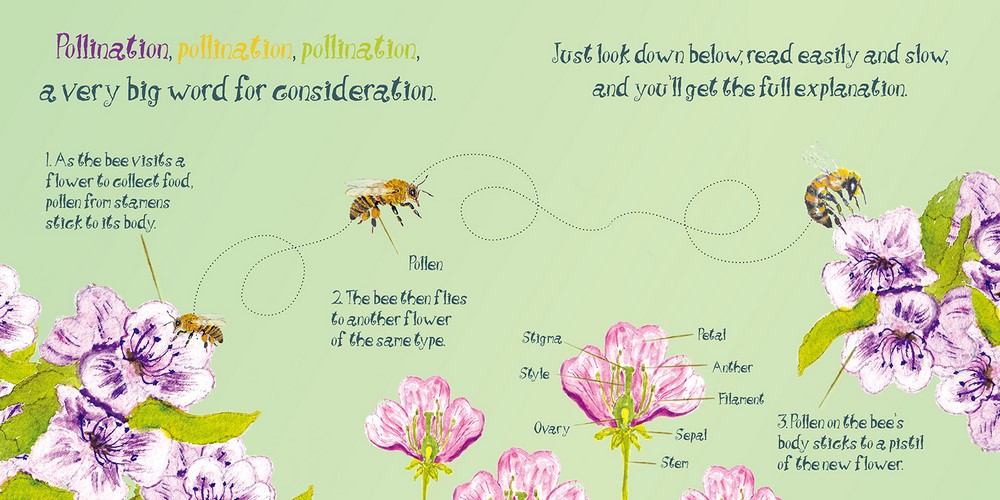 Pollination, pollination, pollination,
a very big word for consideration.
Just look down below, read easily and slow,
and you'll get the full explanation.
1. As the bee visits a
flower to collect food,
pollen from stamens
stick to its body.
Pollen
2. The bee then flies
to another flower
of the same type.
Stigma
Style
Ovary
Petal
Anther
Filament
Sepal
Stem
3. Pollen on the bee's
body sticks to a pistil
of the new flower.